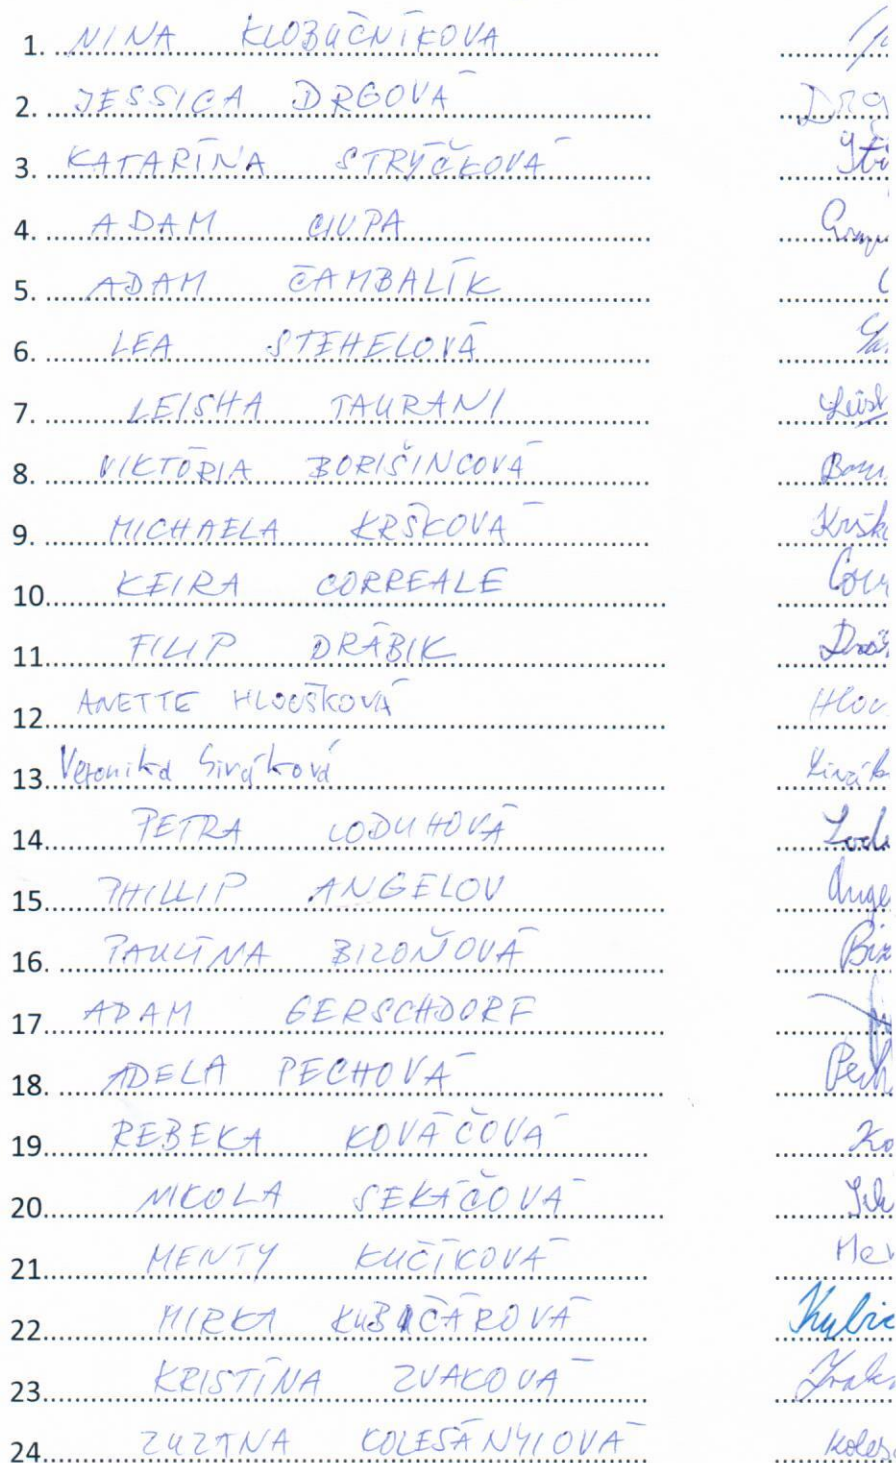 1. NINA KLOBÚČNÍKOVÁ
2. JESSICA DRGOVÁ Drg
3. KATARÍNA STRÝČKOVÁ
4. ADAM CIUPA
5. ADAM ČAMBALÍK
6. LEA STEHELOVÁ
7. LEISHA TAURANI
8. VIKTÓRIA BORIŠINCOVÁ
9. MICHAELA KRŠKOVÁ Kršk
10. KEIRA CORREALE
11. FILIP DRÁBIK
12. ANETTE HLOUŠKOVÁ Hlou
13. Veronika Siváková
14. PETRA LODUHOVÁ
15. PHILLIP ANGELOV Ange
16. PAULÍNA BIZOŇOVÁ Biz
17. ADAM GERSCHDORF
18. ADELA PECHOVÁ Pech
19. REBEKA KOVÁČOVÁ Ko
20. NIKOLA SEKÁČOVÁ
21. MENTY KUČÍKOVÁ
22. MIRKA KUBICÁROVÁ Kubic
23. KRISTÍNA ZVAKOVÁ
24. ZUZANA KOLESÁNYIOVÁ Koles